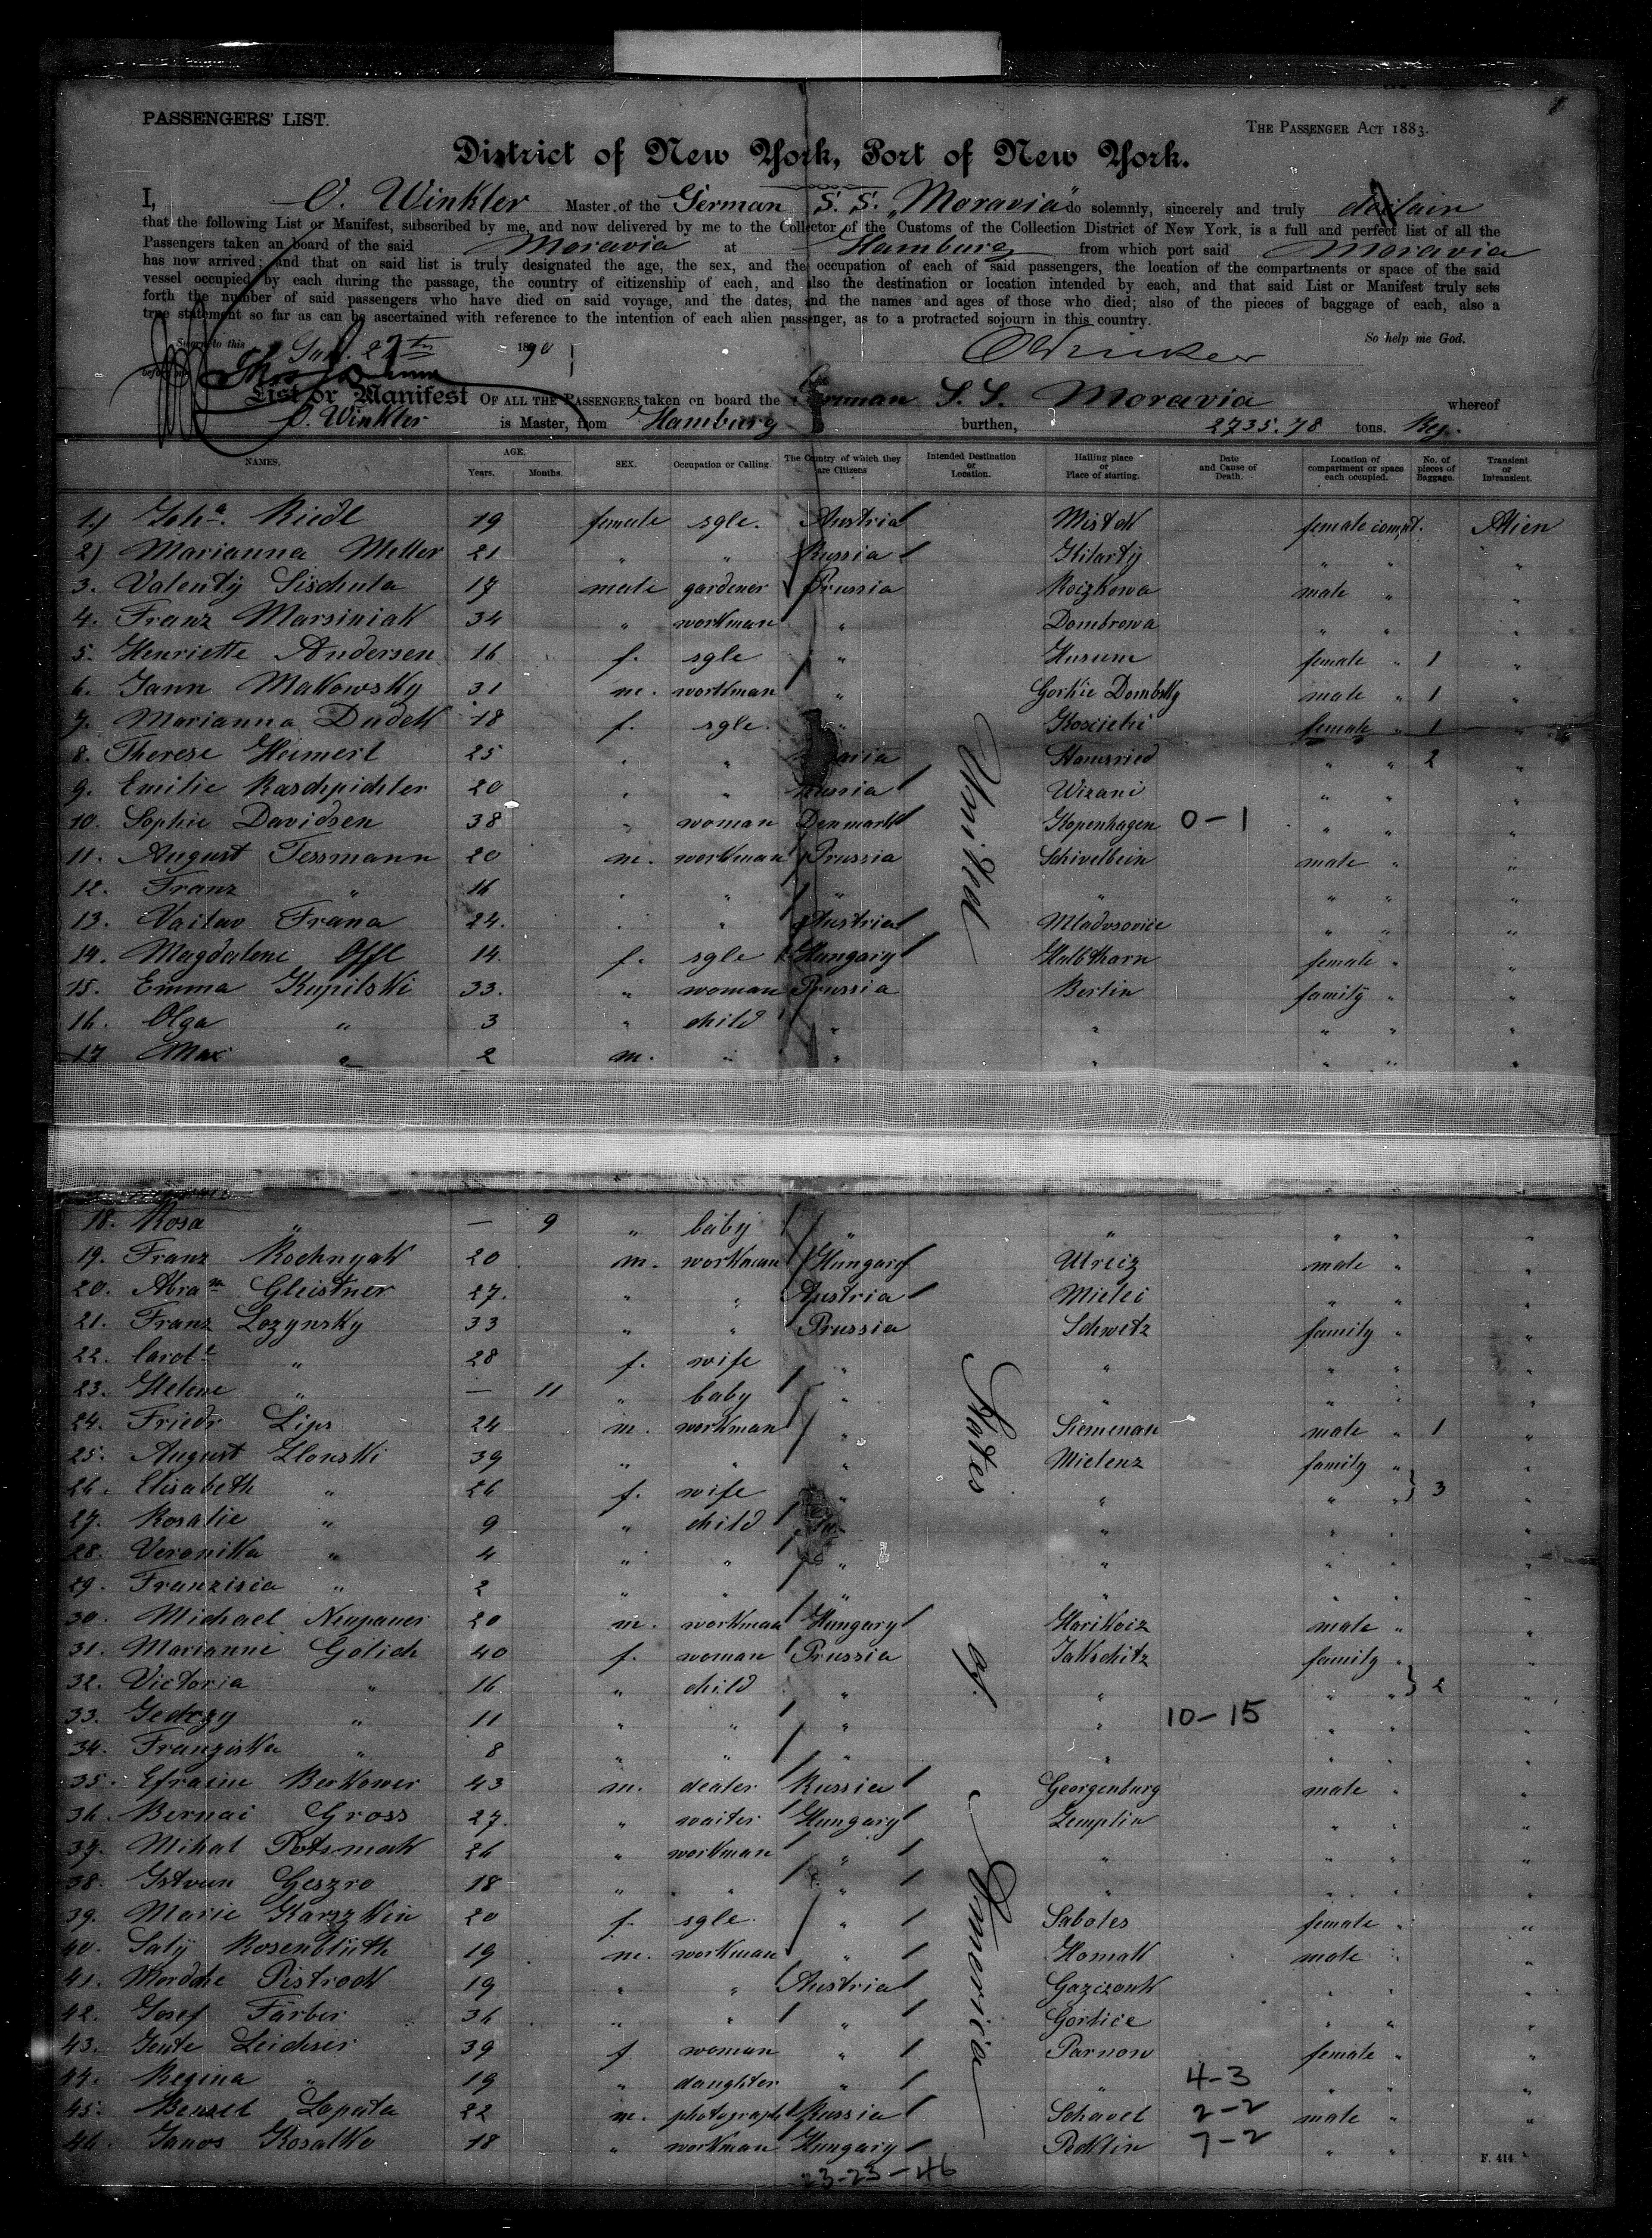 PASSENGERS' LIST.
THE PASSENGER ACT 1883.
District of New York, Port of New York.
I, O. Winkler Master of the German S. S. "Moravia" do solemnly, sincerely and truly
that the following List or Manifest, subscribed by me, and now delivered by me to the Collector of the Customs of the Collection District of New York, is a full and perfect list of all the
Passengers taken on board of the said Moravia at Hamburg from which port said Moravia
has now arrived; and that on said list is truly designated the age, the sex, and the occupation of each of said passengers, the location of the compartments or space of the said
vessel occupied by each during the passage, the country of citizenship of each, and also the destination or location intended by each, and that said List or Manifest truly sets
forth the number of said passengers who have died on said voyage, and the dates, and the names and ages of those who died; also of the pieces of baggage of each, also a
true statement so far as can be ascertained with reference to the intention of each alien passenger, as to a protracted sojourn in this country.
Sworn to this 1890 So help me God.
before me O Winkler
List or Manifest OF ALL THE PASSENGERS taken on board the German S. S. Moravia whereof
O. Winkler is Master, from Hamburg burthen, 2735.78 tons. Reg.
NAMES. AGE. Years. Months. SEX. Occupation or Calling. The Country of which they are Citizens Intended Destination or Location. Hailing place or Place of starting. Date and Cause of Death. Location of compartment or space each occupied. No. of pieces of Baggage. Transient or Intransient.
1.) Joha. Riedl 19 female sgle. Austria Mistek female compt. Alien
2) Marianna Meller 21 " " Russia Hilarty " " "
3. Valenty Sischula 17 male gardener Prussia Roizkowa male " "
4. Franz Marsiniak 34 " workman " Dombrowa " " "
5. Henriette Andersen 16 f. sgle " Husum female " 1 "
6. Jann Makowsky 31 m. workman " Gorkie Dombsky male " 1 "
7. Marianna Dudek 18 f. sgle. " Koscielic female " 1 "
8. Therese Heimerl 25 " " Hamsried " " 2 "
9. Emilie Raschpichler 20 " " Russia Wizani " " "
10. Sophie Davidsen 38 " woman Denmark Kopenhagen 0-1 " " "
11. August Tessmann 20 m. workman Prussia Schivelbein male " "
12. Franz " 16 " " " " " " "
13. Vaitav Frana 24. " " Austria Mladvsovice " " "
14. Magdalene Offl 14. f. sgle Hungary Halbtharn female " "
15. Emma Kupilski 33. " woman Prussia Berlin family " "
16. Olga " 3 " child " " " " "
17 Max " 2 m. " " " " " "
18. Rosa " — 9 " baby " " " " "
19. Franz Rochnyak 20 m. workman Hungary Utreiz male " "
20. Abram Gleistner 27. " " Austria Mielei " " "
21. Franz Lozynsky 33 " " Prussia Schwetz family " "
22. Carole " 28 f. wife " " " " "
23. Helene " — 11 " baby " " " " "
24. Friedr Lips 24 m. workman " Siemenau male " 1 "
25. August Zlonski 39 " " " Mielenz family " "
26. Elisabeth " 26 f. wife " " " " 3 "
27. Rosalie " 9 " child " " " "
28. Veronika " 4 " " " " " " "
29. Franzisia " 2 " " " " " " "
30. Michael Neupauer 20 m. workman Hungary Harikoiz male " "
31. Marianne Golich 40 f. woman Prussia Jakschitz family " "
32. Victoria " 16 " child " " " " 2 "
33. Gedrzy " 11 " " " " 10-15 " " "
34. Franziska " 8 " " " " " " "
35. Efraim Berkower 43 m. dealer Russia Georgenburg male " "
36. Bernai Gross 27. " waiter Hungary Zemplin " " "
37. Mihal Potsmak 26 " workman " " " " "
38. Istvan Geszro 18 " " " " " " "
39. Marie Karszkin 20 f. sgle. " Sabotes female " "
40. Saly Rosenblüth 19 m. workman " Homak male " "
41. Mordche Pistrock 19 " " Austria Gazizank " " "
42. Josef Färber 36 " " " Gorlice " " "
43. Jente Leichser 39 f woman " Parnow female " "
44. Regina " 19 " daughter " " 4-3 " " "
45. Benzel Lapata 22 m. photograph Russia Schavel 2-2 male " "
46. Janos Kosalko 18 " workman Hungary Peklin 7-2 " "
United States of America
23-23-46
F. 414